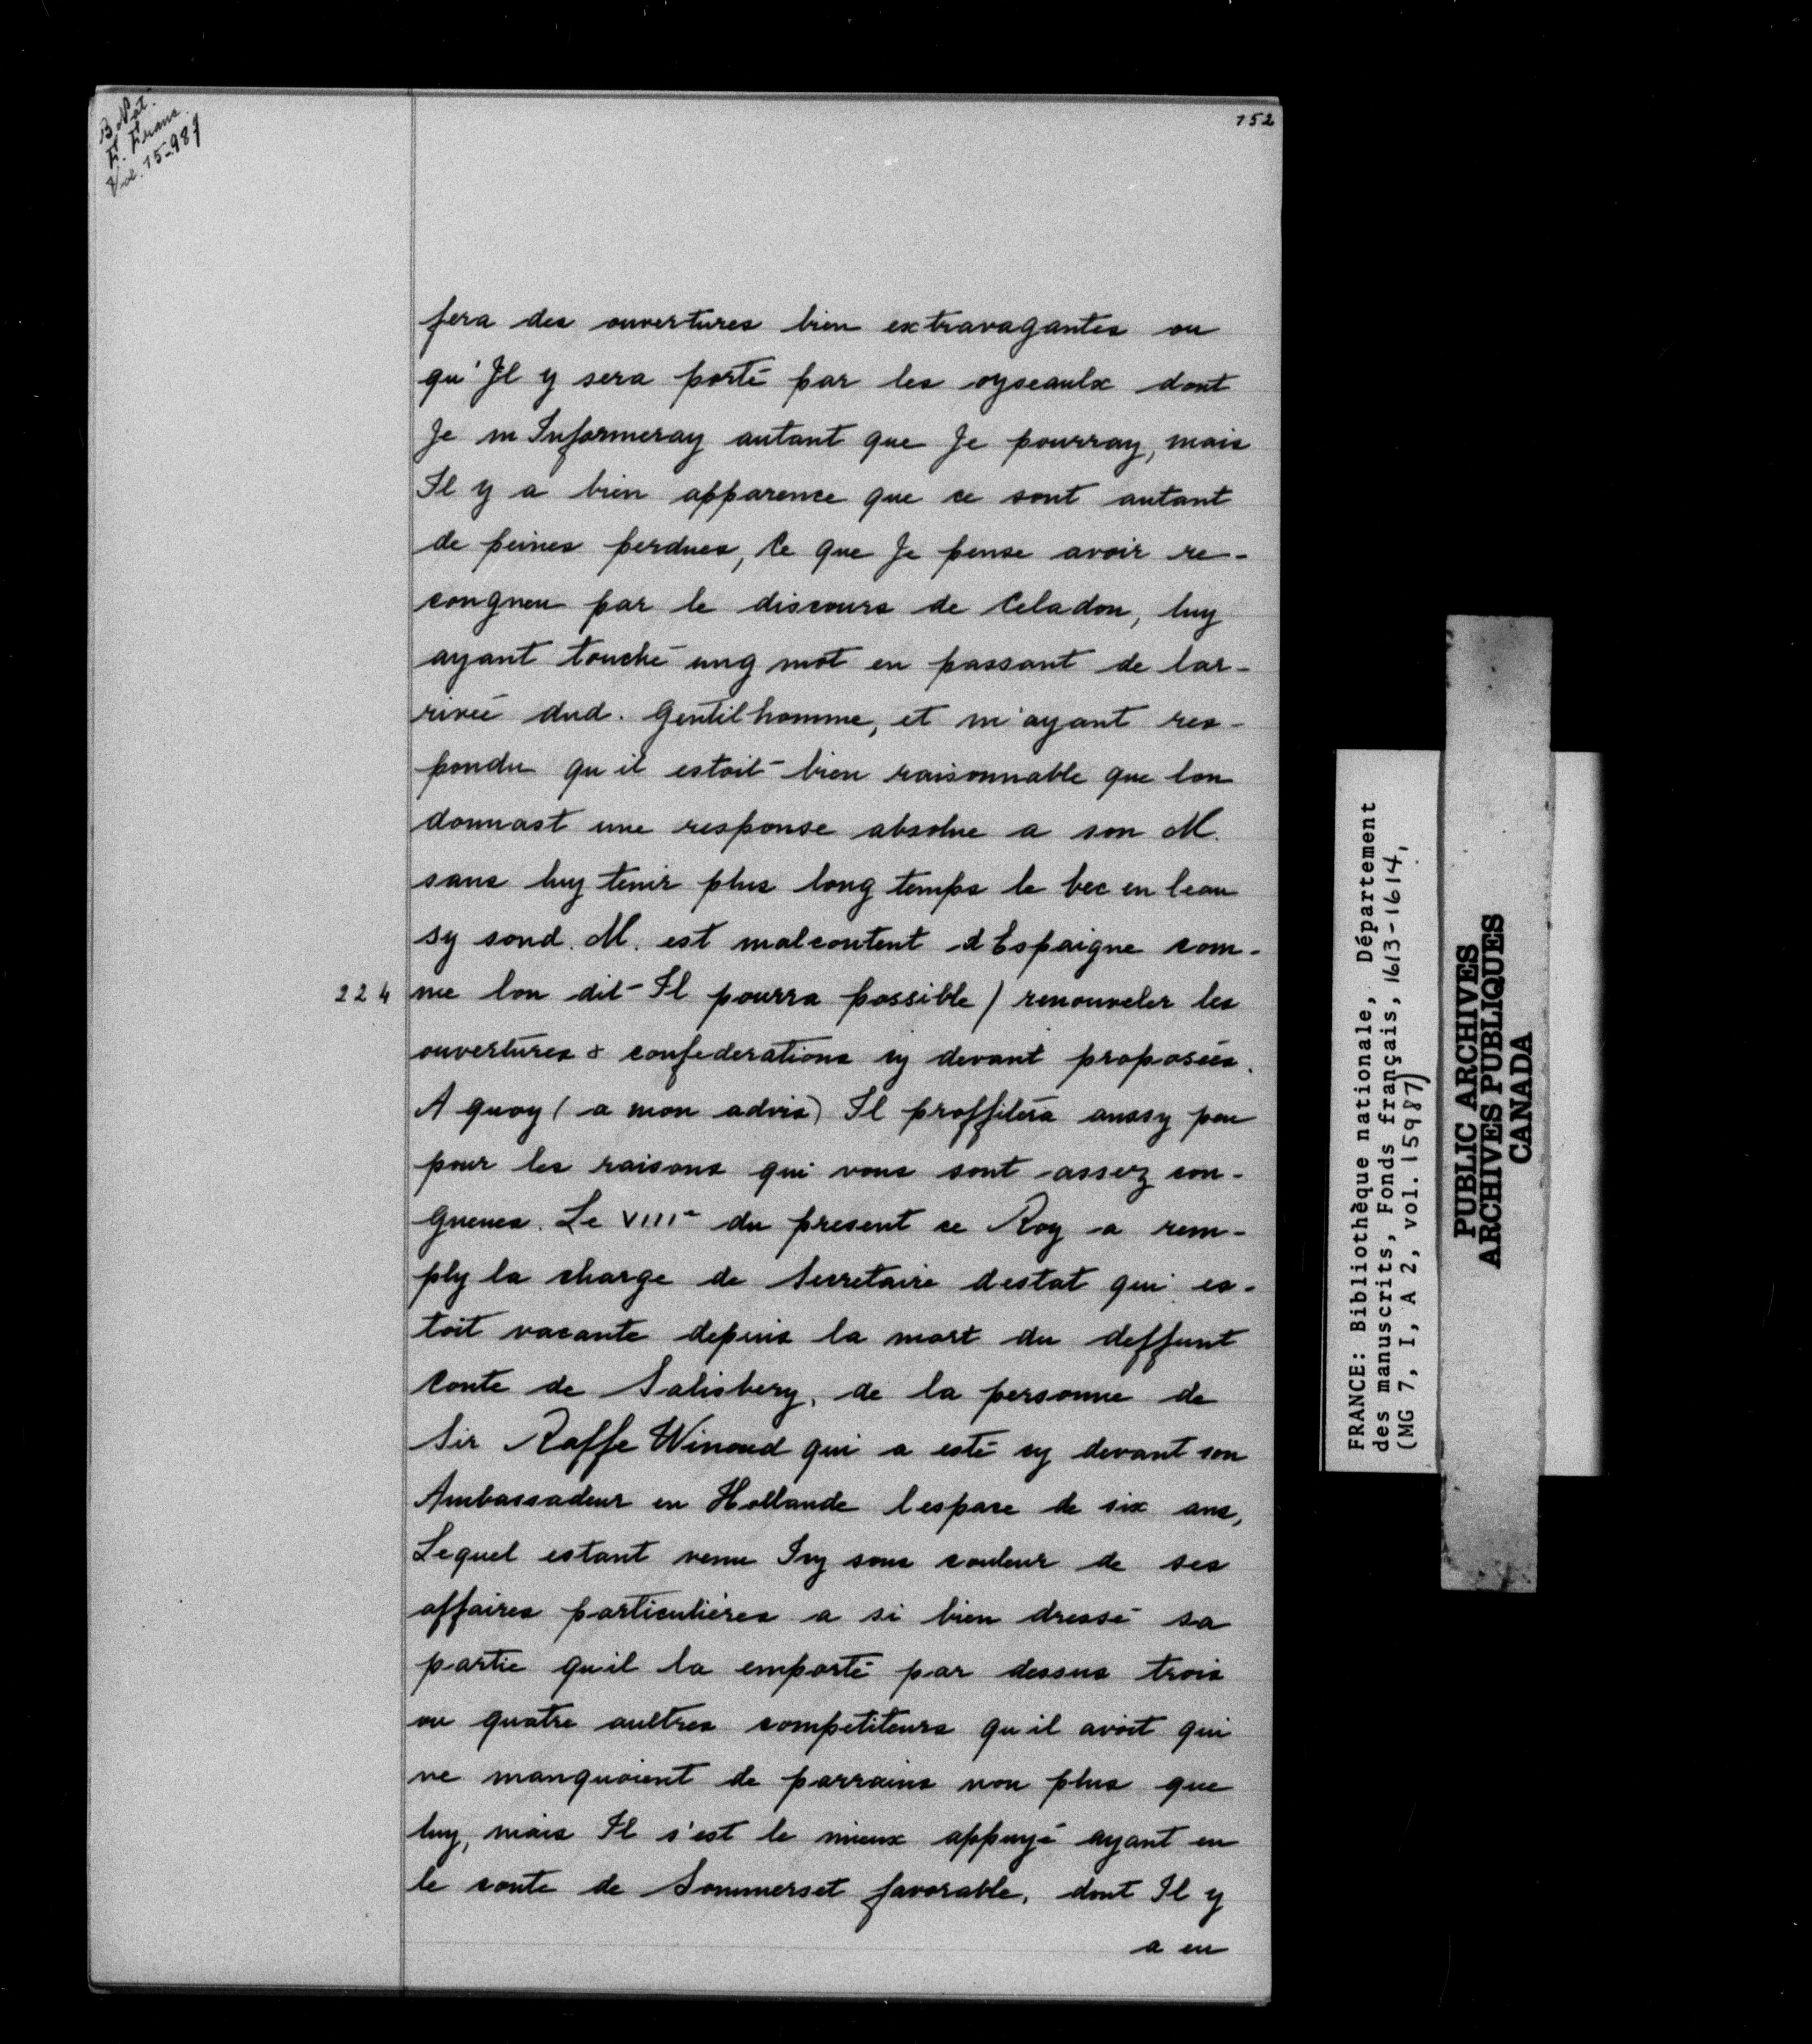 B. Nat.
F. Franc.
Vol. 15-987
152
fera des ouvertures bien extravagantes ou
qu'Il y sera porté par les oyseaulx dont
Je m Informeray autant que Je pourray, mais
Il y a bien apparence que ce sont autant
de peines perdues, Ce que Je pense avoir re-
congneu par le discours de Celadon, luy
ayant touché ung mot en passant de lar-
rivée dud. Gentilhomme, et m'ayant res-
pondu qu il estoit bien raisonnable que lon
donnast une response absolue a son M.
sans luy tenir plus long temps le bec en leau
sy sond. M. est malcontent d Espaigne com-
224 me lon dit Il pourra possible / renouveler les
ouvertures & confederations cy devant proposées.
A quoy ( a mon advis) Il proffitera aussy peu
pour les raisons qui vous sont assez con-
gneues. Le VIIIe du present ce Roy a rem-
ply la charge de Secretaire destat qui es-
toit vacante depuis la mort du deffunt
Conte de Salisbery, de la personne de
Sir Raffe Winoud qui a esté cy devant son
Ambassadeur en Hollande lespace de six ans,
Lequel estant venu Icy sous couleur de ses
affaires particulières a si bien dressé sa
partie quil la emporté par dessus trois
ou quatre aultres competiteurs qu il avoit qui
ne manquoient de parrains non plus que
luy, mais Il s'est le mieux appuyé ayant eu
le conte de Sommerset favorable, dont Il y
a eu
FRANCE: Bibliothèque nationale, Département
des manuscrits, Fonds français, 1613-1614,
(MG 7, I, A 2, vol. 15987)
PUBLIC ARCHIVES
ARCHIVES PUBLIQUES
CANADA